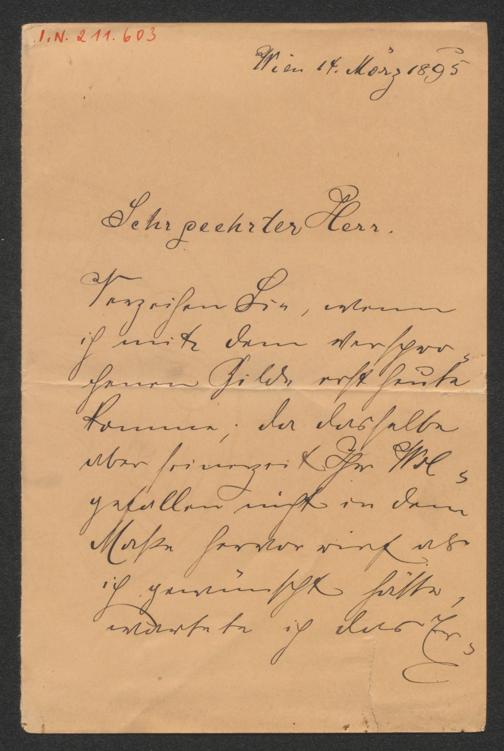 I.N. 211.603
Wien 14. März 1895
Sehr geehrter Herr.
Verzeihen Sie, wenn
ich mit dem verspro-
chenen Bilde erst heute
komme; da dasselbe
aber seinerzeit Ihr Wol-
gefallen nicht in dem
Maße hervorrief als
ich gewünscht hätte,
wartete ich das Er-